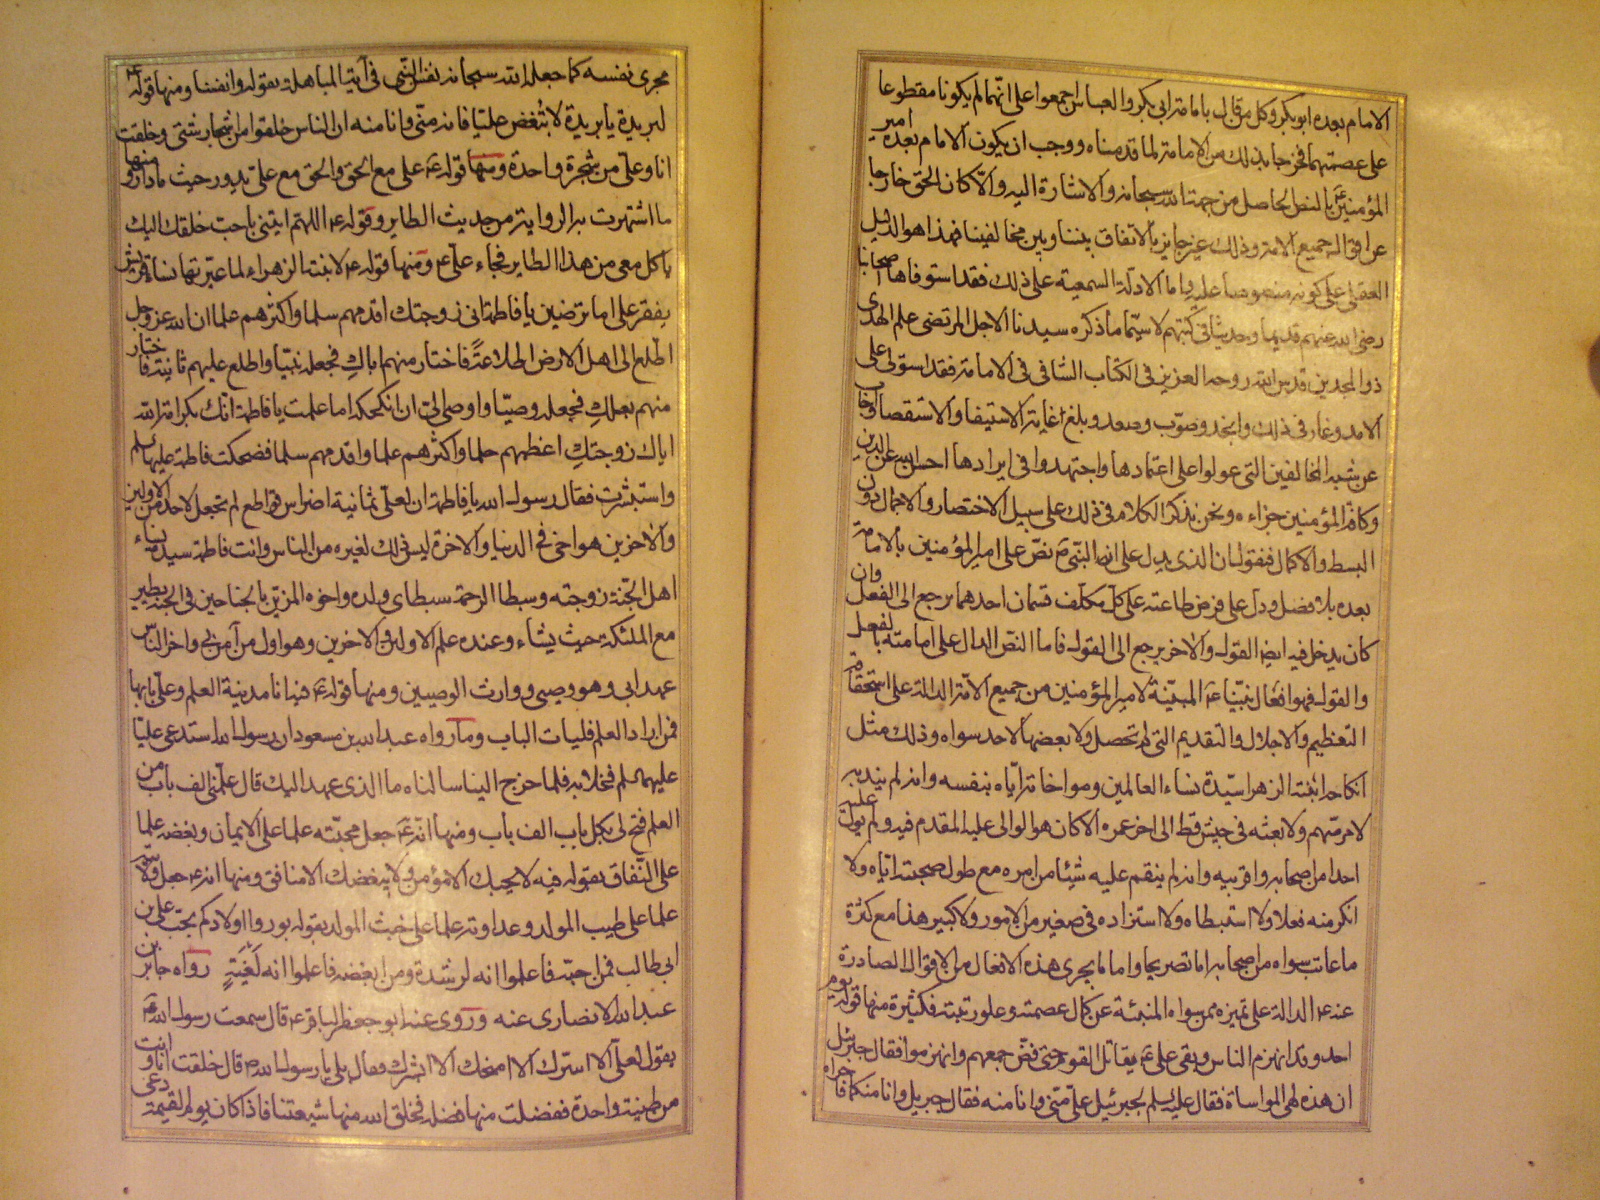 الامام بعده ابو بكر وكل من قال بامامة ابي بكر والعباس اجمعوا على انهما لم يكونا مقطوعا
على عصمتهما فخرجا بذلك من الامامة لما قدمناه ووجب ان يكون الامام بعده امير
المؤمنين ع بالنص الحاصل من جهة الله سبحانه والاشارة اليه والا كان الحق خارجا
عن اقوال جميع الامة وذلك غير جايز بالاتفاق بيننا وبين مخالفينا فهذا هو الدليل
العقلي على كونه منصوصا عليه واما الادلة السمعية على ذلك فقد استوفاها اصحابنا
رضي الله عنهم قديما وحديثا في كتبهم لاسيما ما ذكره سيدنا الاجل المرتضى علم الهدى
ذو المجدين قدس الله روحه العزيز في الكتاب الشافي في الامامة فقد استولى على
الامد وغار في ذلك وانجد وصوب وصعد وبلغ غاية الاستيفا والاستقصا واجاب
عن شبه المخالفين التي عولوا على اعتمادها واجتهدوا في ايرادها احسن الله عن الدين
وكافة المؤمنين جزاءه ونحن نذكر الكلام في ذلك على سبيل الاختصار والاجمال دون
البسط والاكمال فنقول ان الذي يدل على ان النبي ص نص على امير المؤمنين بالامامة
بعده بلا فصل ودل على فرض طاعته على كل مكلف قسمان احدهما يرجع الى الفعل وان
كان يدخل فيه ايضا القول والاخر يرجع الى القول فاما النص الدال على امامته بالفعل
والقول فهو افعال نبينا ع المبينة لامير المؤمنين من جميع الامة الدالة على استحقاقه
التعظيم والاجلال والتقديم التي لم تحصل ولا بعضها لاحد سواه وذلك مثل
انكاحه ابنته الزهرا سيدة نساء العالمين ومواخاته اياه بنفسه وانه لم يندبه
لامر مهم ولا بعثه في جيش قط الى اخر عمره الا كان هو الوالي عليه المقدم فيه ولم يول عليه
احدا من اصحابه واقربيه وانه لم ينقم عليه شيئا من امره مع طول صحبته اياه ولا
انكر منه فعلا ولا استبطاه ولا استزاده في صغير من الامور ولا كبير هذا مع كثرة
ما عاتب سواه من اصحابه اما تصريحا واما لما يجري هذه الافعال من الاقوال الصادرة
عنه ع الدالة على تميزه ممن سواه المنبئة عن كمال عصمته وعلو رتبته فكثيرة منها قوله يوم
احد وقد انهزم الناس وبقي علي ع يقاتل القوم حتى فض جمعهم وانهزموا فقال جبرئيل
ان هذه لهي المواساة فقال عليه السلم لجبرئيل علي مني وانا منه فقال جبريل وانا منكما فاجراه
مجرى نفسه كما جعله الله سبحانه نفس النبي في آية المباهلة بقوله وانفسنا ومنها قوله ع
لبريدة يا بريدة لا تبغض عليا فانه مني وانا منه ان الناس خلقوا من شجار شتى وخلقت
انا وعلي من شجرة واحدة ومنها قوله ع علي مع الحق والحق مع علي يدور حيث ما دار ومنها
ما اشتهرت به الرواية من حديث الطاير وقوله ع اللهم ايتني باحب خلقك اليك
ياكل معي من هذا الطاير فجاء علي ع ومنها قوله ع لابنته الزهراء لما عيرتها نساء قريش
بفقر علي اما ترضين يا فاطمة اني زوجتك اقدمهم سلما واكثرهم علما ان الله عز وجل
اطلع الى اهل الارض اطلاعة فاختار منهم اباك فجعله نبيا واطلع عليهم ثانية فاختار
منهم بعلك فجعله وصيا واوصى الي ان انكحكه اما علمت يا فاطمة انك بكرامة الله
اياك زوجتك اعظمهم حلما واكثرهم علما واقدمهم سلما فضحكت فاطمة عليها سلم
واستبشرت فقال رسول الله يا فاطمة ان لعلي ثمانية اضراس قواطع لم تجعل لاحد من الاولين
والاخرين هو اخي في الدنيا والاخرة ليس ذلك لغيره من الناس وانت فاطمة سيدة نساء
اهل الجنة زوجته وسبطا الرحمة سبطاي ولده واخوه المزين بالجناحين في الجنة يطير
مع الملئكة حيث يشاء وعنده علم الاولين والاخرين وهو اول من آمن بي واخر الناس
عهدا بي وهو وصيي ووارث الوصيين ومنها قوله ع فيه انا مدينة العلم وعلي بابها
فمن اراد العلم فليات الباب وما رواه عبد الله بن مسعود ان رسول الله استدعى عليا
عليهما سلم فخلا به فلما خرج الينا سالناه ما الذي عهد اليك قال علمني الف باب من
العلم فتح لي بكل باب الف باب ومنها انه ع جعل محبته علما على الايمان وبغضه علما
على النفاق بقوله فيه لا يحبك الا مؤمن ولا يبغضك الا منافق ومنها انه ع جعل ولايته
علما على طيب المولد وعداوته علما على خبث المولد بقوله بوروا اولادكم بحب علي بن
ابي طالب فمن احبه فاعلموا انه لرشدة ومن ابغضه فاعلموا انه لغية رواه جابر بن
عبد الله الانصاري عنه وروى عنه ابو جعفر الباقر ع قال سمعت رسول الله ص
يقول لعلي الا اسرك الا امنحك الا ابشرك فقال بلى يا رسول الله قال خلقت انا وانت
من طينة واحدة ففضلت منها فضلة فخلق الله منها شيعتنا فاذا كان يوم القيمة دعي